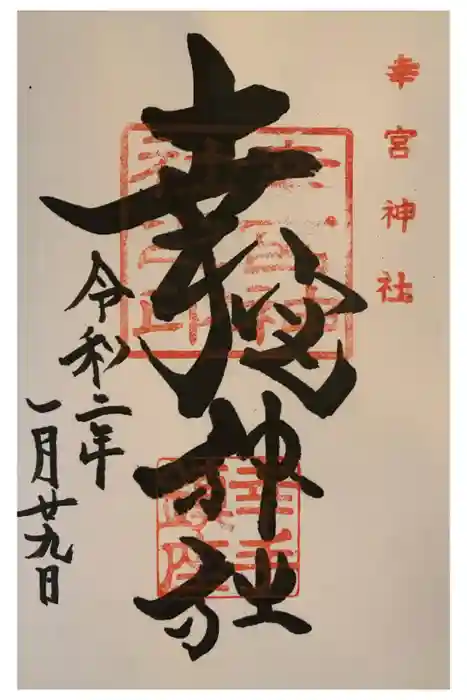 幸宮神社
幸宮神社
令和二年
一月廿九日
幸手
鎮座